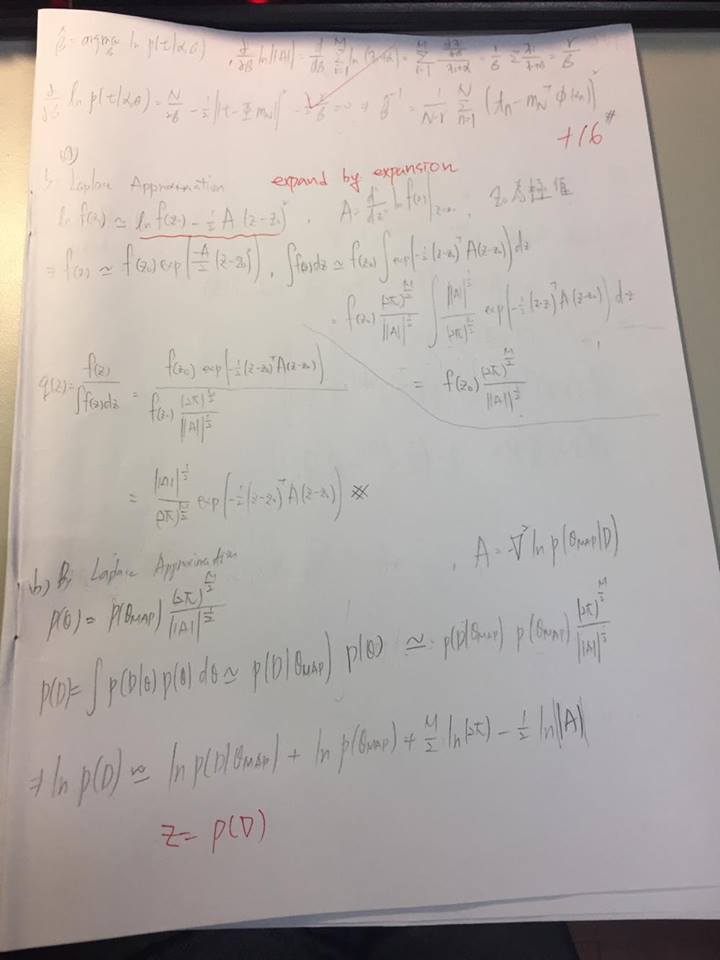 β̂ = argmax_β ln p(t|α,β) , d/dβ ln||A| = d/dβ Σ_{i=1}^{M} ln(λi+α) = Σ_{i=1}^{M} (dλi/dβ)/(λi+α) = 1/β Σ λi/(λi+α) = γ/β
∂/∂β ln p(t|α,β) = N/2β − 1/2||t−Φm_N||² − γ/2β = 0 ⇒ β̂^{-1} = 1/(N−γ) Σ_{n=1}^{N} (t_n − m_N^T φ(x_n))²
+16
By Laplace Approximation expand by expansion
ln f(z) ≃ ln f(z₀) − 1/2 A (z−z₀)² , A = d²/dz² ln f(z)|_{z=z₀} , z₀為極值
⇒ f(z) ≃ f(z₀) exp(−A/2 (z−z₀)²) , ∫f(z)dz ≃ f(z₀) ∫exp(−1/2 (z−z₀)^T A(z−z₀)) dz
= f(z₀) (2π)^{M/2}/||A||^{1/2} ∫ ||A||^{1/2}/(2π)^{M/2} exp(−1/2 (z−z₀)^T A(z−z₀)) dz
q(z) = f(z)/∫f(z)dz = f(z₀) exp(−1/2 (z−z₀)^T A(z−z₀)) / f(z₀) (2π)^{M/2}/||A||^{1/2} = f(z₀) (2π)^{M/2}/||A||^{1/2}
= ||A||^{1/2}/(2π)^{M/2} exp(−1/2 (z−z₀)^T A(z−z₀)) ※
b) By Laplace Approximation , A = −∇² ln p(θ_MAP|D)
p(θ) = p(θ_MAP) (2π)^{M/2}/||A||^{1/2}
p(D) = ∫ p(D|θ) p(θ) dθ ≃ p(D|θ_MAP) p(θ) ≃ p(D|θ_MAP) p(θ_MAP) (2π)^{M/2}/||A||^{1/2}
⇒ ln p(D) ≃ ln p(D|θ_MAP) + ln p(θ_MAP) + M/2 ln(2π) − 1/2 ln||A|
z = p(D)